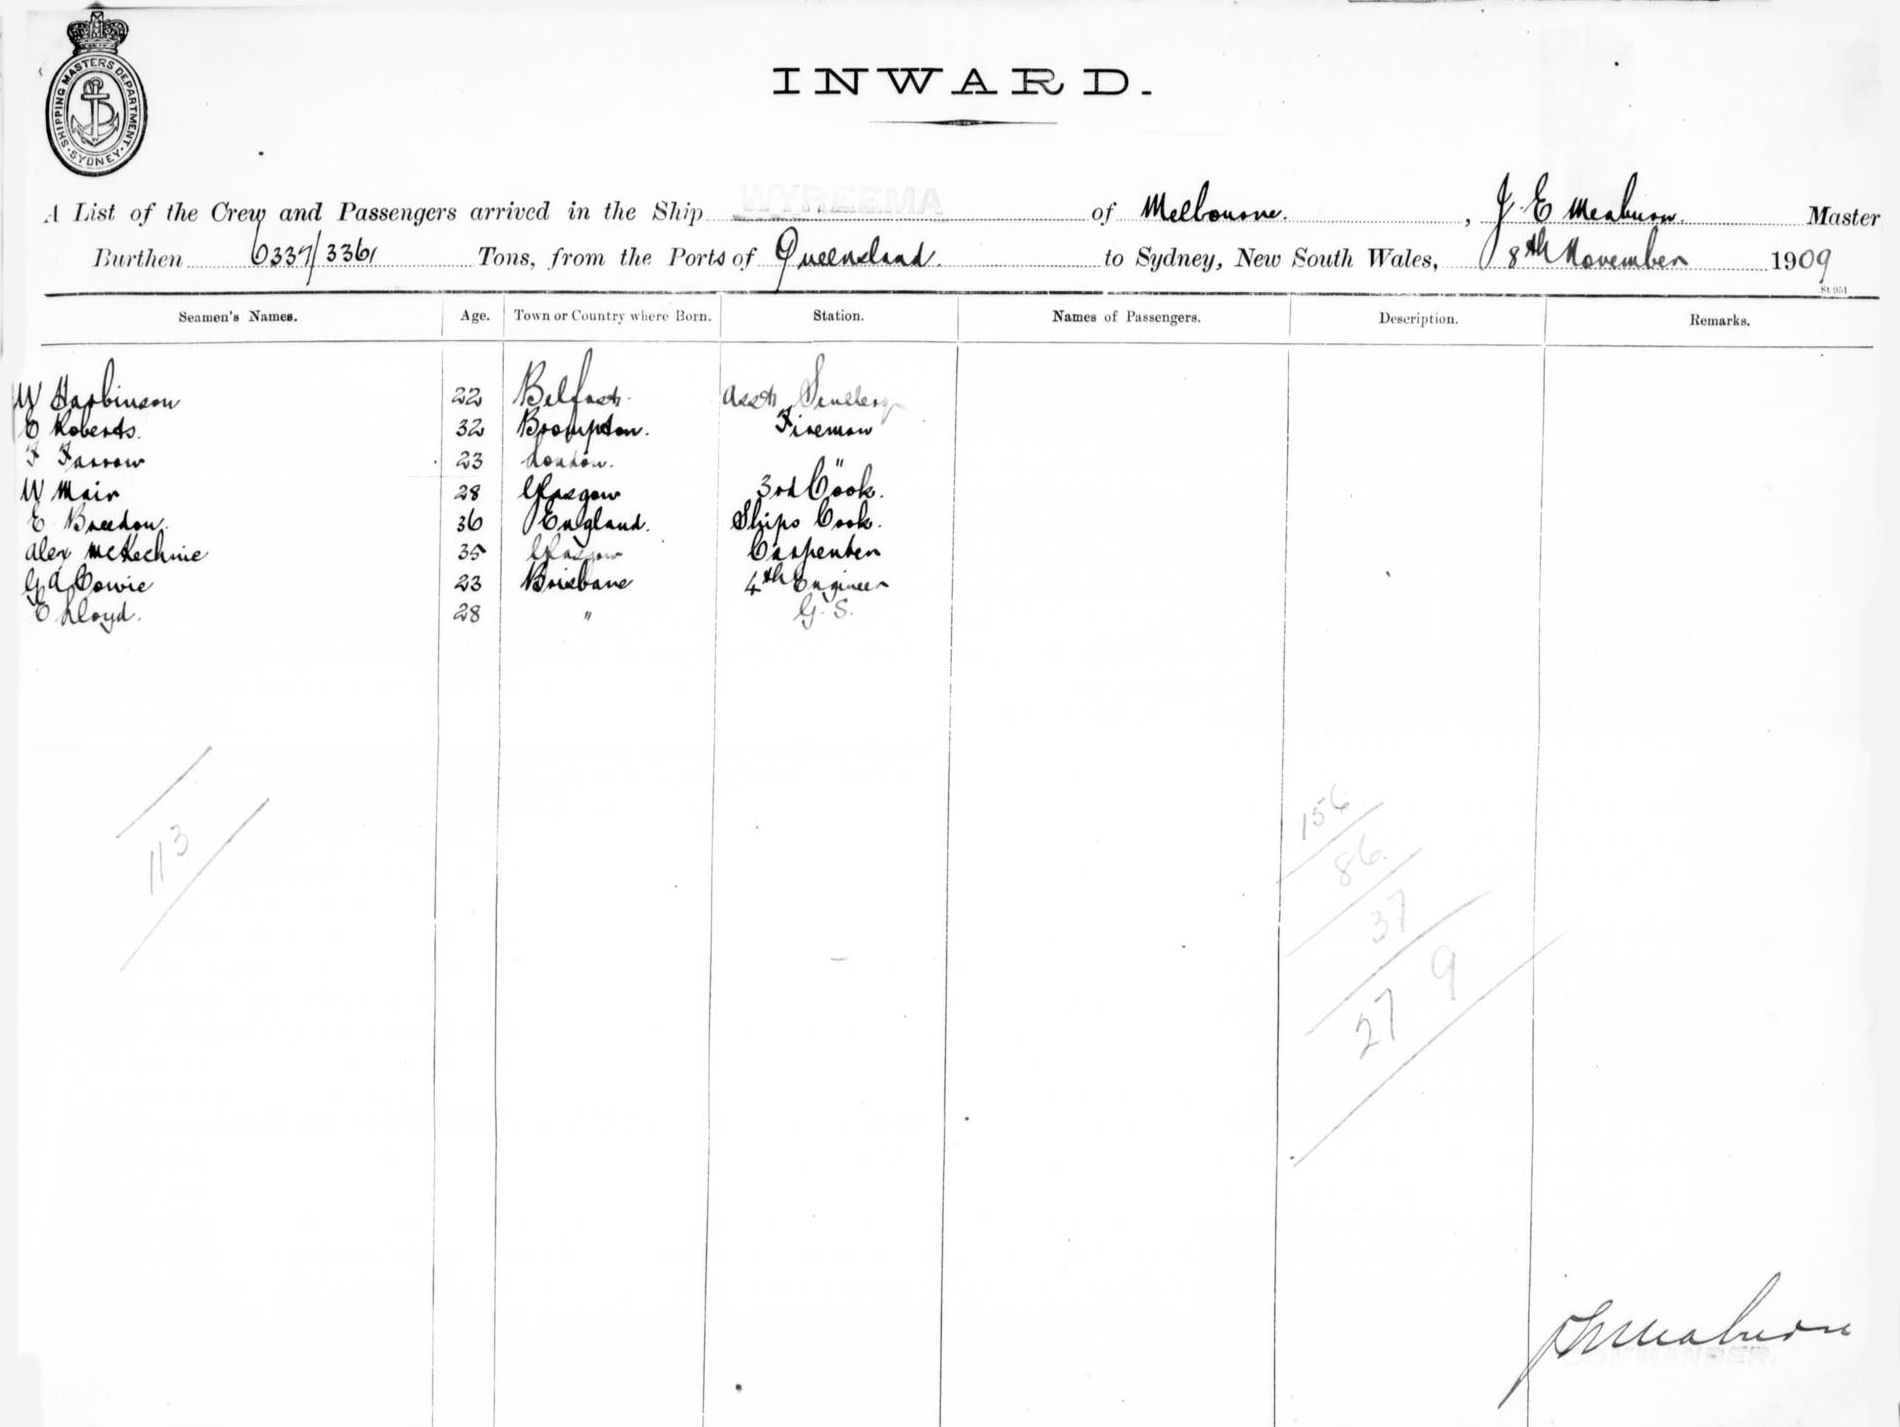 SHIPPING MASTERS DEPARTMENT. SYDNEY.
INWARD.
A List of the Crew and Passengers arrived in the Ship WYREEMA of Melbourne. , J. E Meaburn. Master
Burthen 6337/3361 Tons, from the Ports of Queensland. to Sydney, New South Wales, 8th November 1909
St 951
Seamen's Names. Age. Town or Country where Born. Station. Names of Passengers. Description. Remarks.
W Harbinson 22 Belfast. Asst
E Roberts. 32 Brompton. Fireman
F Farrow 23 London. "
W Mair 28 Glasgow 3rd Cook.
E Breedon. 36 England. Ships Cook.
Alex McKechnie 35 Glasgow Carpenter
G A Cowie 23 Brisbane 4th Engineer
E Lloyd. 28 " G. S.
113
156
86
37
279
J E Meaburn
COMMANDER.